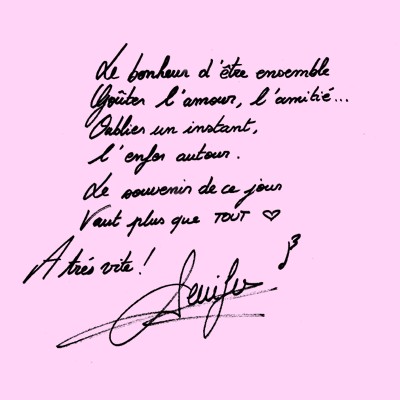 Le bonheur d'être ensemble
Goûter l'amour, l'amitié...
Oublier un instant,
l'enfer autour.
Le souvenir de ce jour
Vaut plus que TOUT ♡
A très vite !
Jenifer